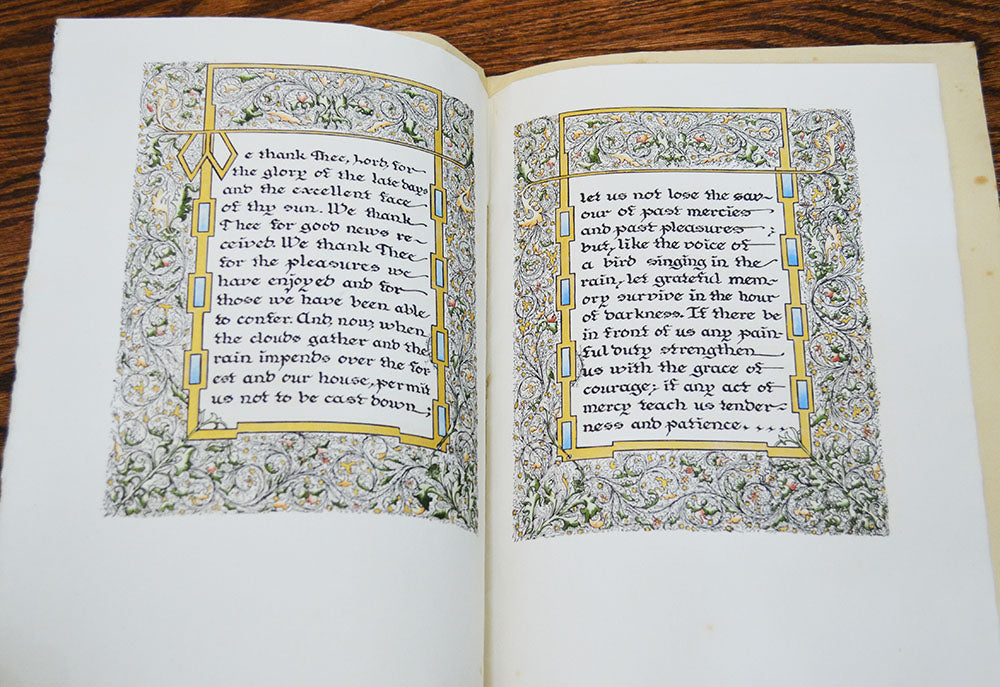 We thank Thee, Lord, for
the glory of the late days
and the excellent face
of thy sun. We thank
Thee for good news re-
ceived. We thank Thee
for the pleasures we
have enjoyed and for
those we have been able
to confer. And, now, when
the clouds gather and the
rain impends over the for
est and our house, permit
us not to be cast down;
let us not lose the sav-
our of past mercies
and past pleasures;
but, like the voice of
a bird singing in the
rain, let grateful mem-
ory survive in the hour
of darkness. If there be
in front of us any pain-
ful duty strengthen
us with the grace of
courage; if any act of
mercy teach us tender-
ness and patience....